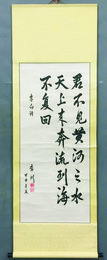 君不见黄河之水
天上来奔流到海
不复回
李白诗